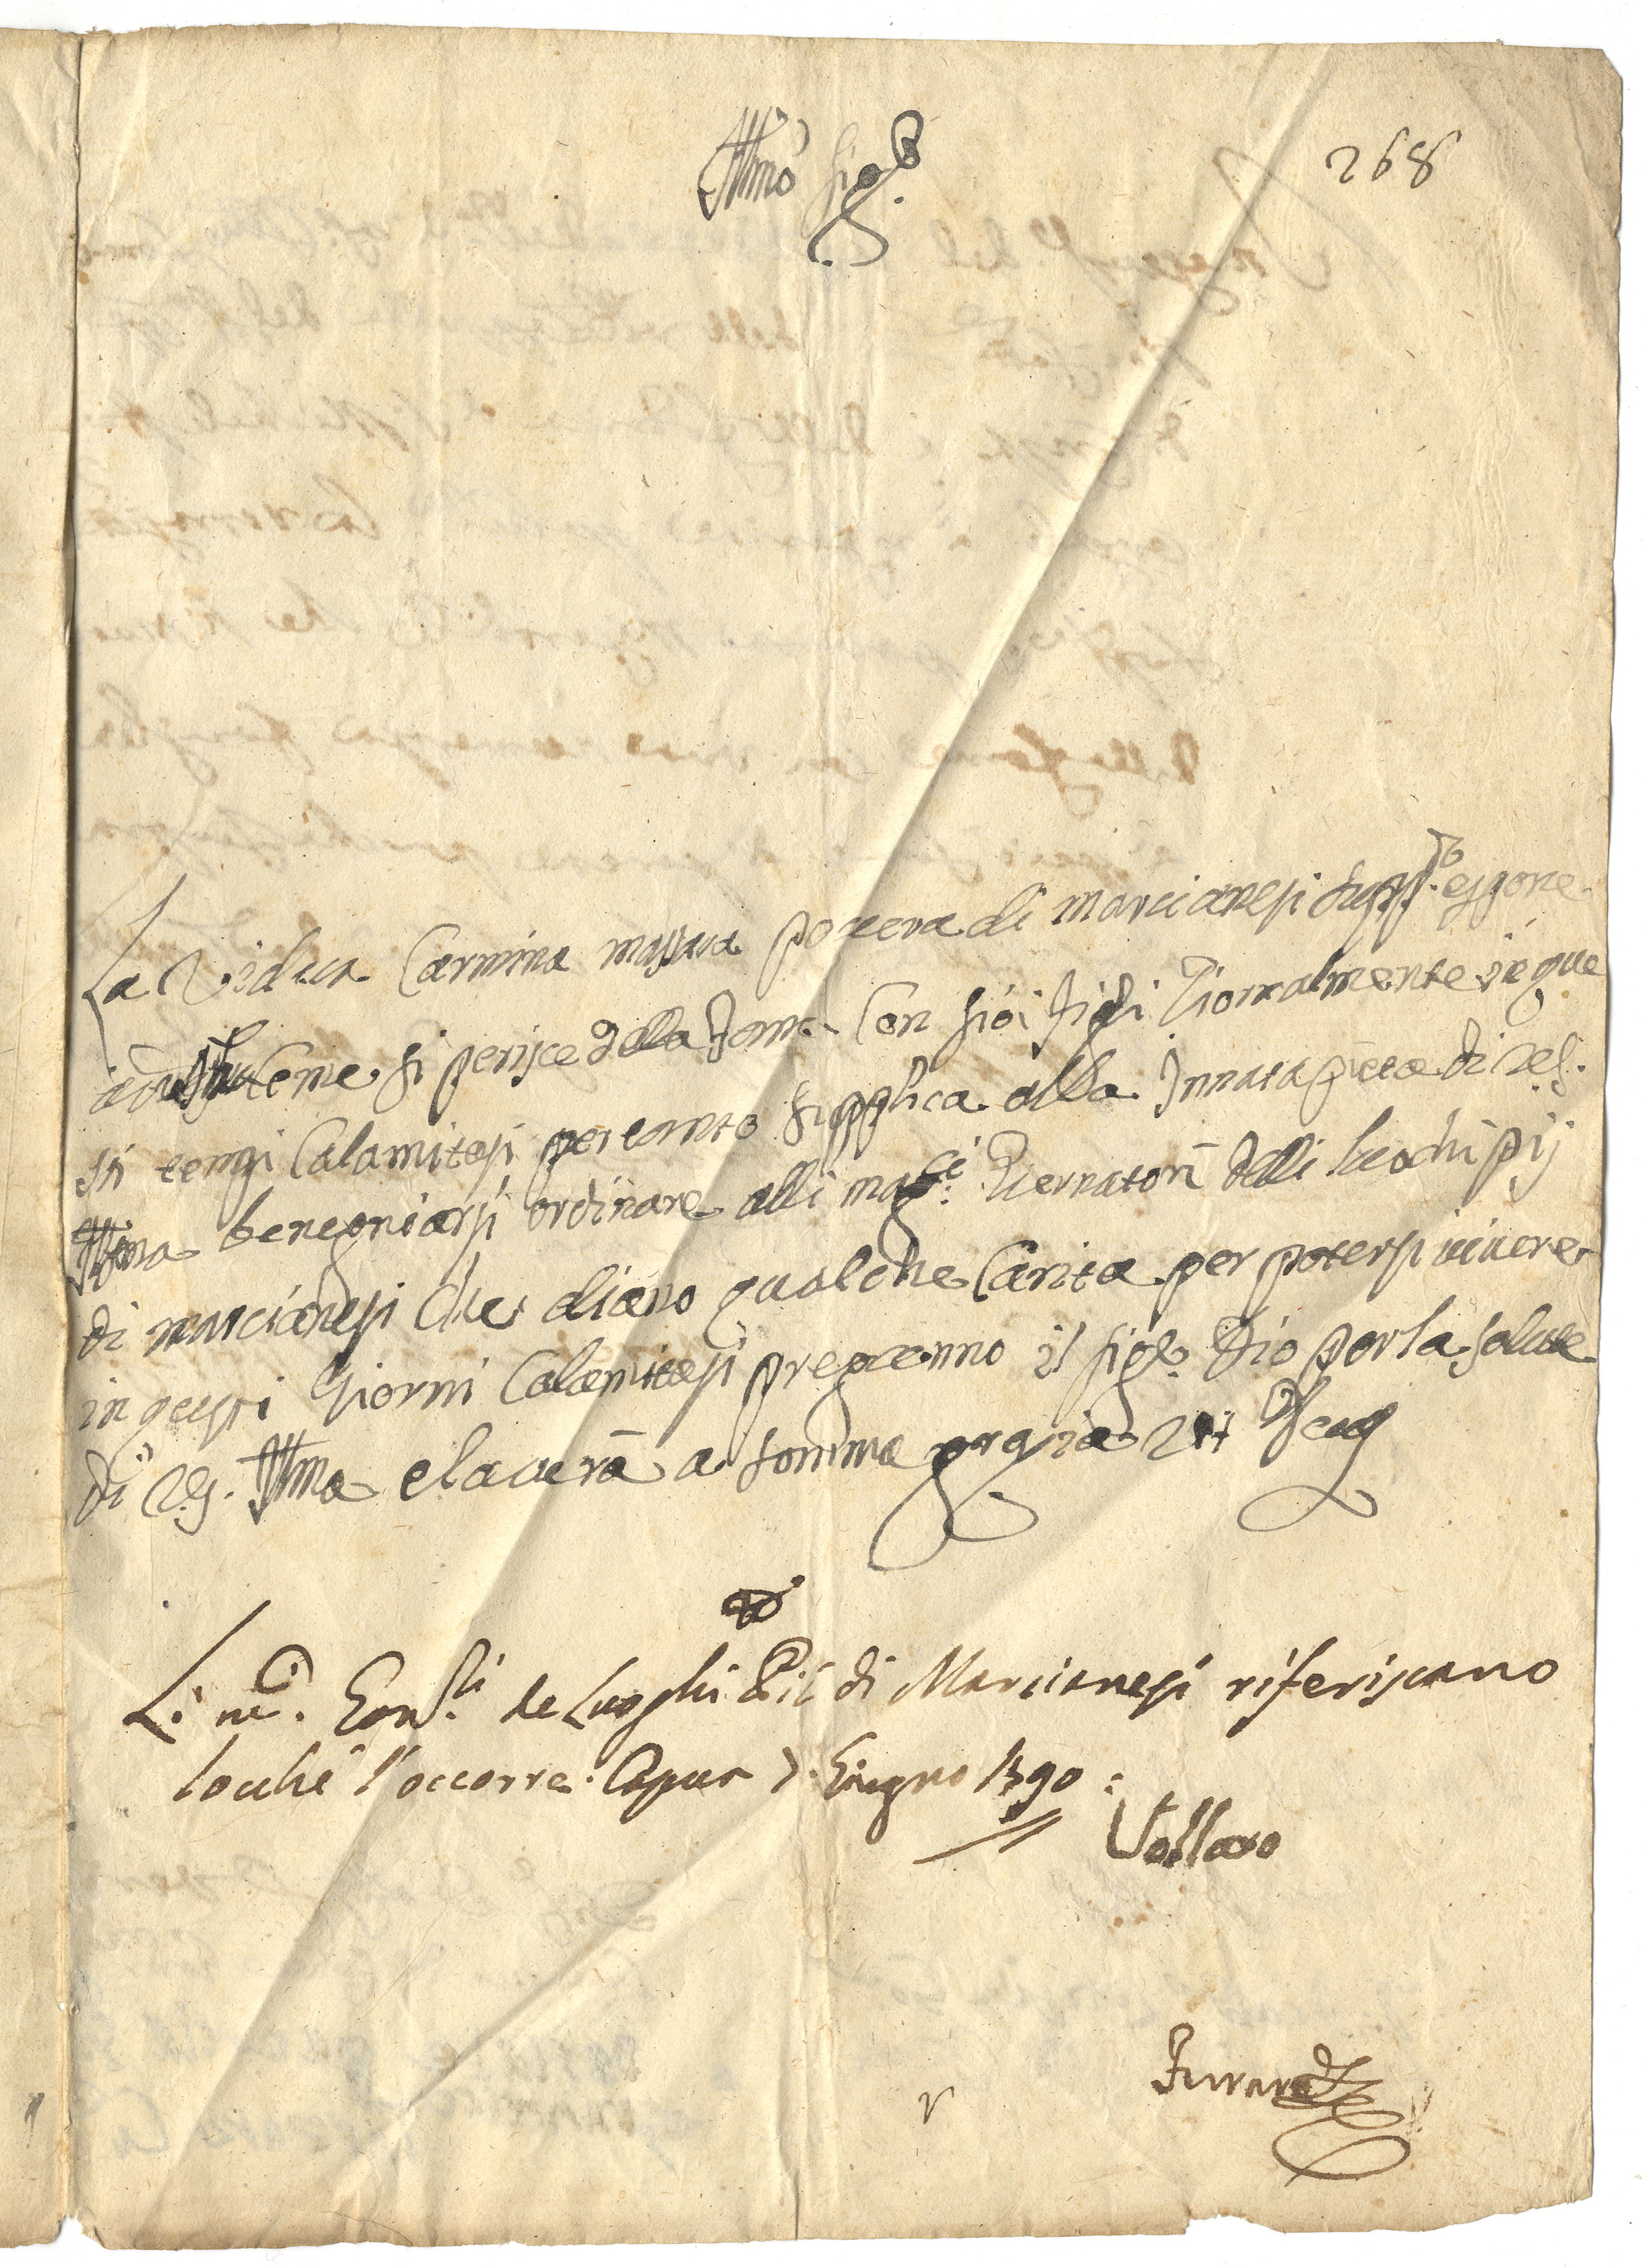 Ill.mo Sig.re
268
La Vidua Carmina massara povera di marcianesi supp.te espone
Come si perisce della fame Con suoi figli Giornalmente in que
sti tempi Calamitosi pertanto supplica alla Innata pieta di V.S.
Ill.ma benegniarsi ordinare alli mag.ci Guernatori delli luochi pij
di marcianesi che diano qualche Carita per potersi vivere
in questi Giorni Calamitosi pregranno il sig.re Dio per la salute
di V.S. Ill.ma e lavera a somma grazia ut Deus
Li m.ci Gov.ri de Luoghi Pii di Marcianesi riferiscano
locche l'occorre. Capua 7. Giugno 1790:
Vollaro